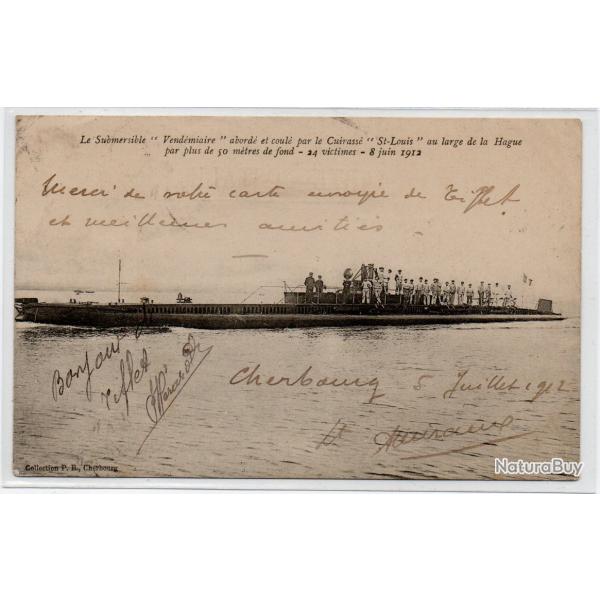 Le Submersible " Vendémiaire " abordé et coulé par le Cuirassé " St-Louis " au large de la Hague
par plus de 50 mètres de fond - 24 victimes - 8 juin 1912
Merci de votre carte envoyée de Tiffet
et meilleures amitiés
Bonjour
Tiffet
Cherbourg 5 Juillet 1912
Collection P. B., Cherbourg
NaturaBuy